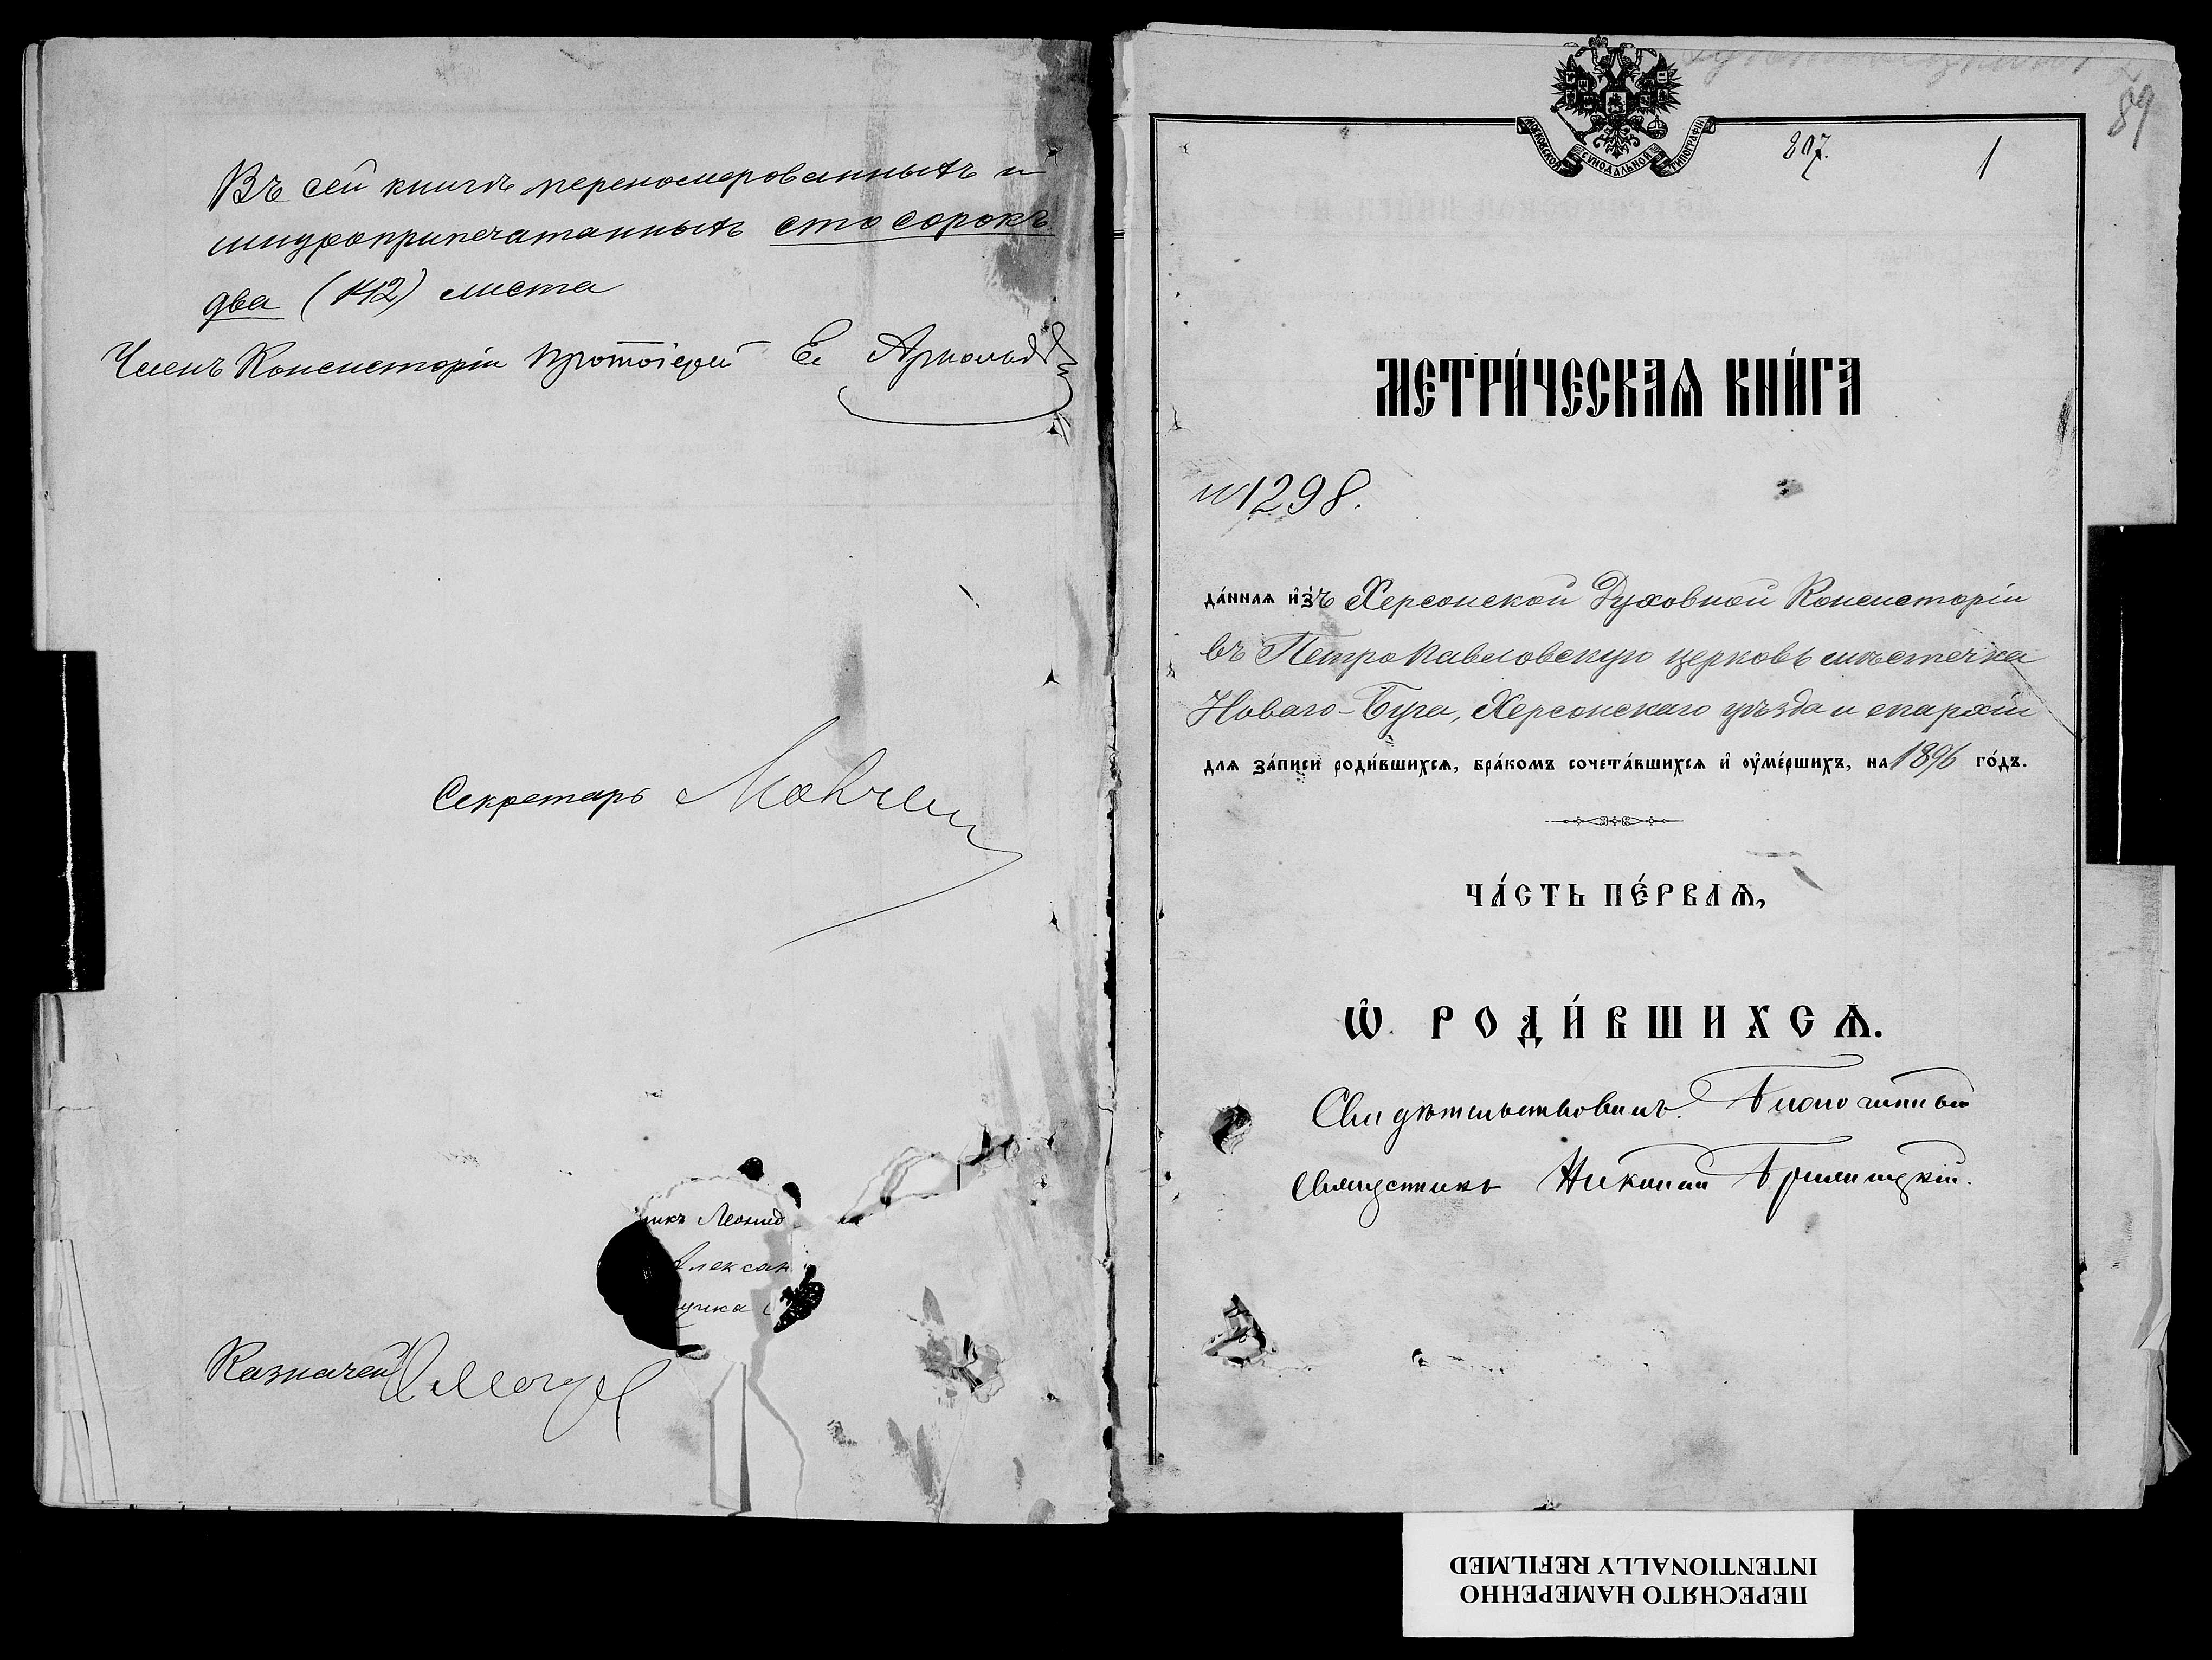 Въ сей книгѣ перенумерованныхъ и
шнуроприпечатанныхъ сто сорокъ
два (142) листа
Членъ Консисторіи Протоіерей Е. Арнольдъ
Секретарь
никъ Леонид
Алексан
Казначей
89
МОСКОВСКОЙ СѴНОДАЛЬНОЙ ТИПОГРАФІИ
207.
1
МЕТРИ́ЧЕСКАѦ КНИ́ГА
№ 1298.
да́ннаѧ и҆зъ Херсонской Духовной Консисторіи
въ Петропавловскую церковь мѣстечка
Новаго-Буга, Херсонскаго уѣзда и епархіи
длѧ за́писи роди́вшихсѧ, бра́комъ сочета́вшихсѧ и҆ оу҆ме́ршихъ, на 1896 го́дъ.
ЧА́СТЬ ПЕ́РВАѦ,
Ѡ҆ РОДИ́ВШИХСѦ.
Свидѣтельствовалъ Благочинный
Священникъ Николай
ПЕРЕСНЯТО НАМЕРЕННО
INTENTIONALLY REFILMED